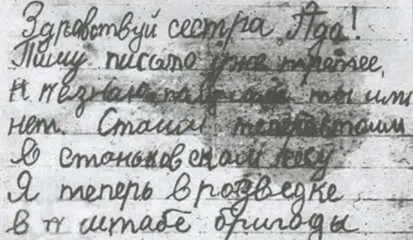 Здравствуй сестра Ада!
Пишу писмо уже третее,
и незнаю ты или
нет. Стоим
В станьковском лесу
Я теперь в розведке
в п штабе бригоды